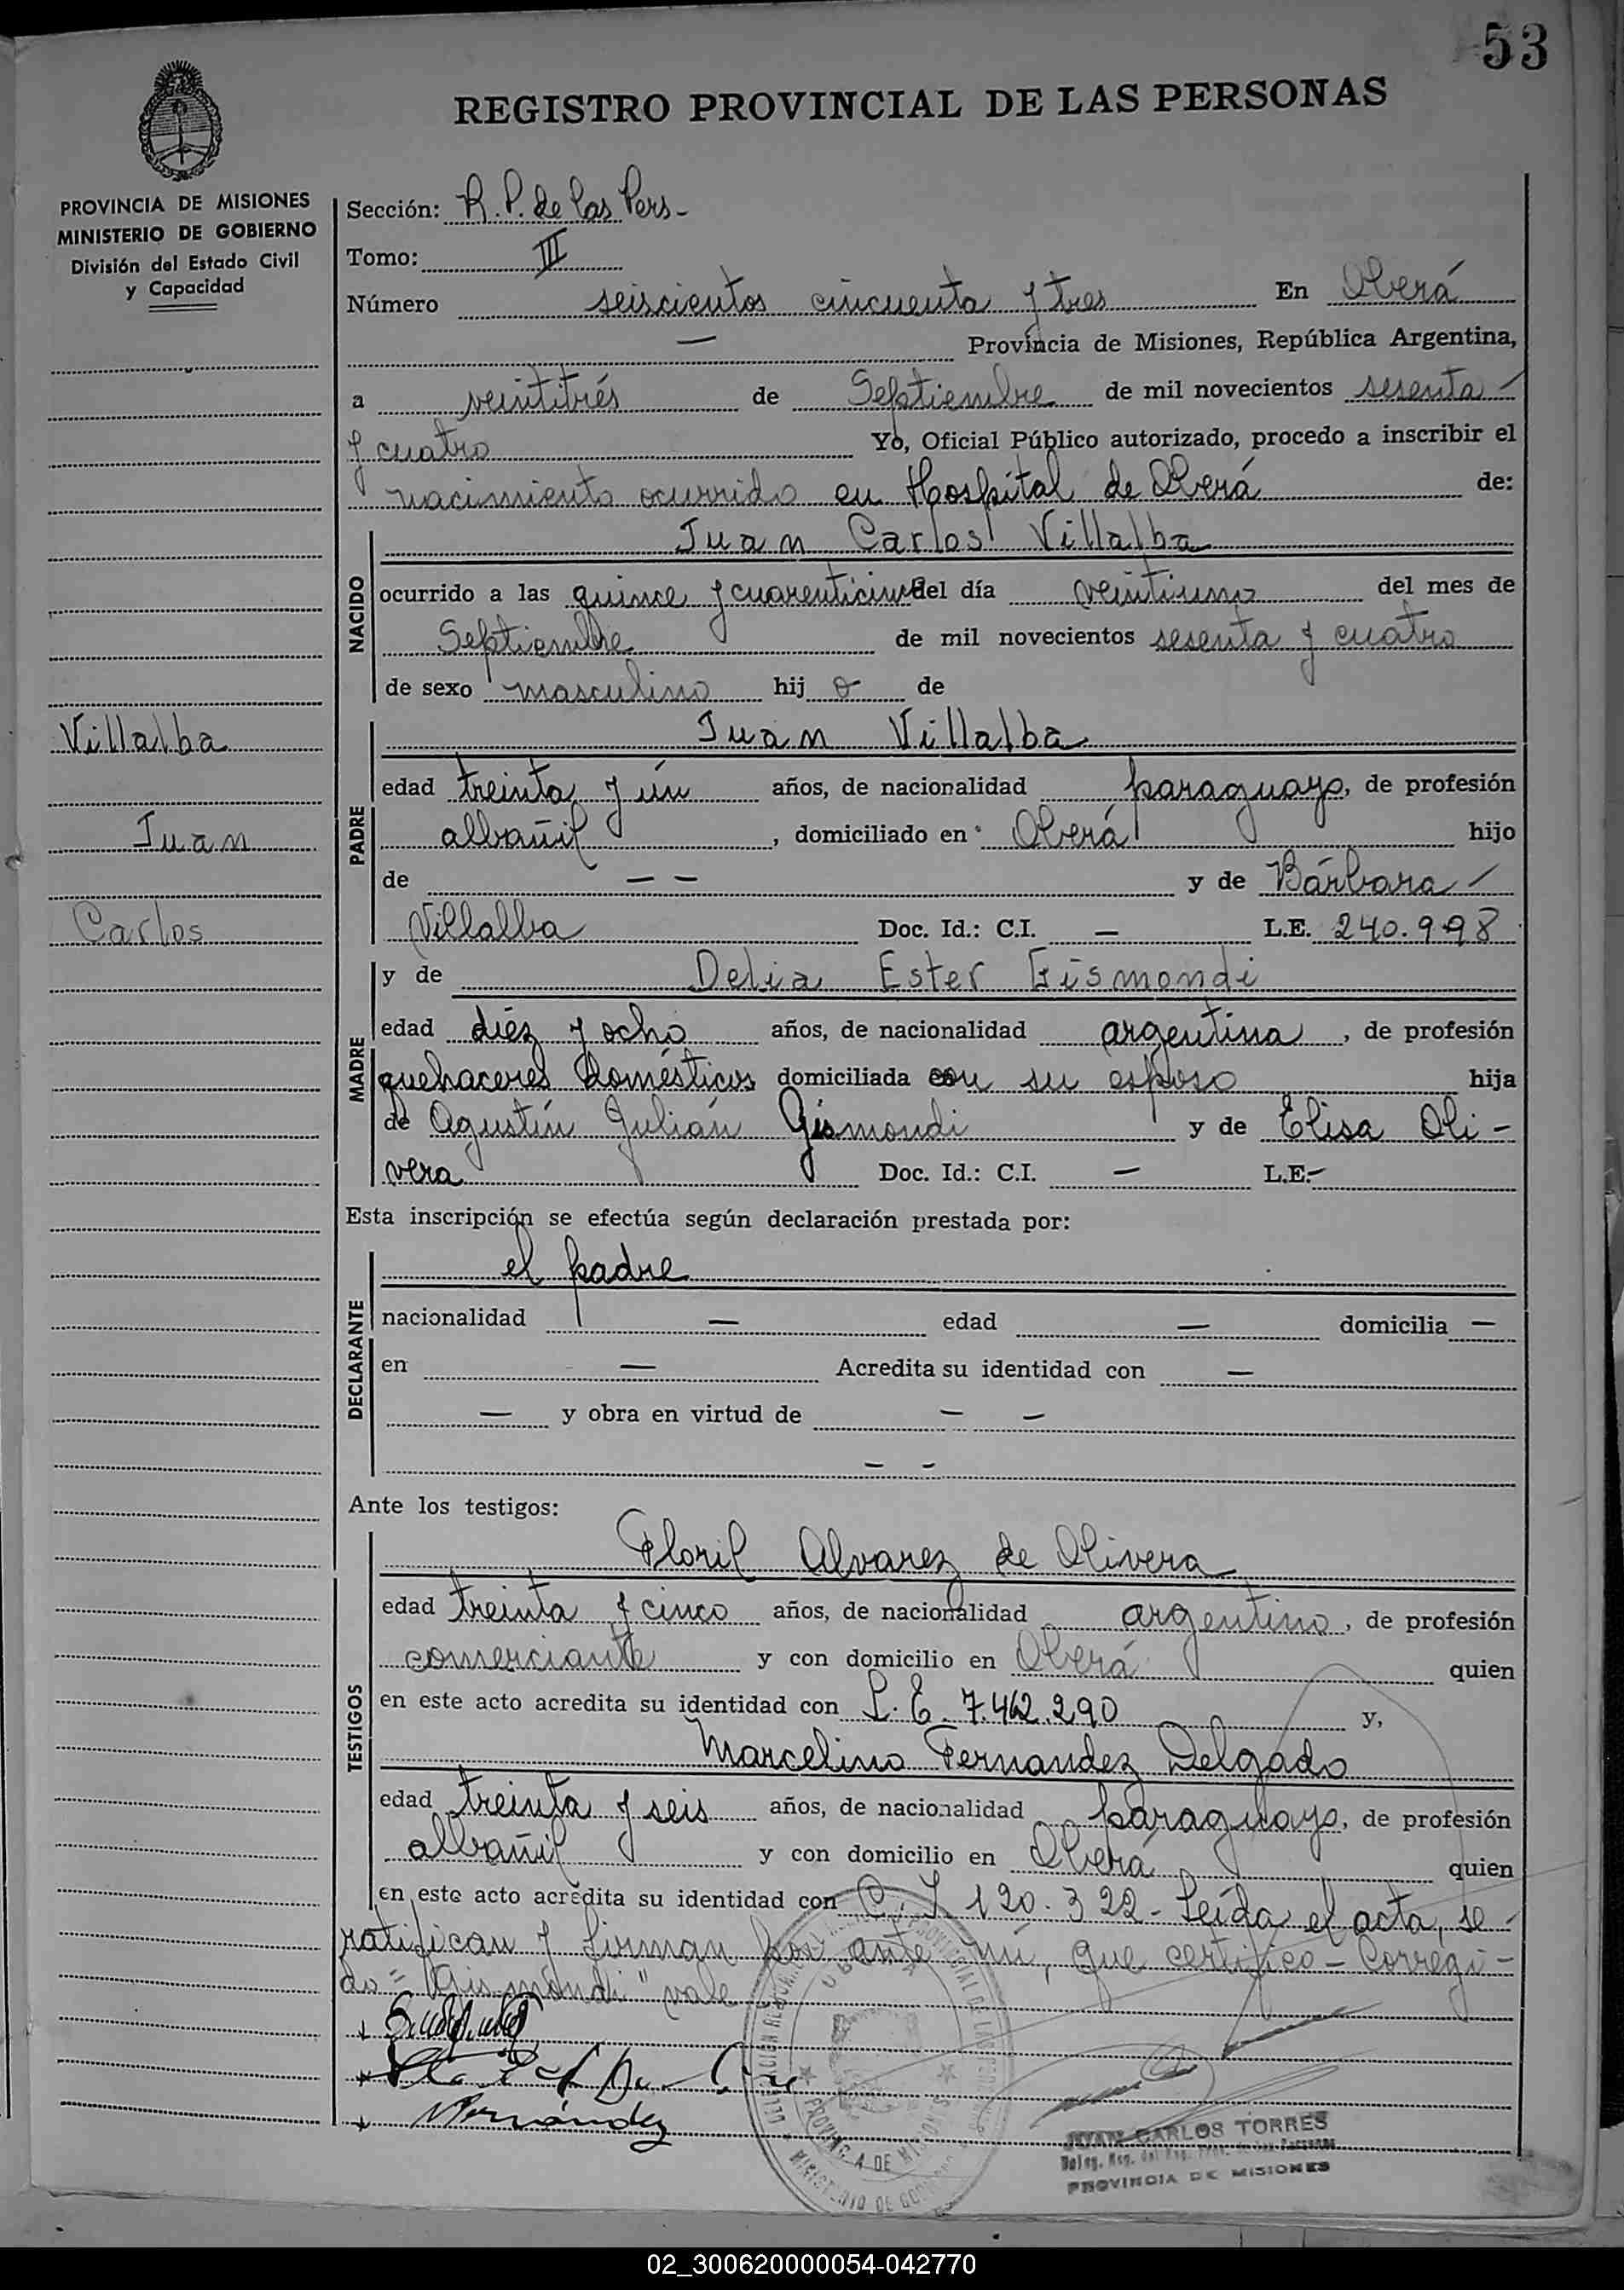 53
REGISTRO PROVINCIAL DE LAS PERSONAS
PROVINCIA DE MISIONES
MINISTERIO DE GOBIERNO
División del Estado Civil
y Capacidad
Sección: R. P. de las Pers-
Tomo: III
Número seiscientos cincuenta y tres En Oberá
— Provincia de Misiones, República Argentina,
a veintitrés de Septiembre de mil novecientos sesenta
y cuatro Yo, Oficial Público autorizado, procedo a inscribir el
nacimiento ocurrido en Hospital de Oberá de:
NACIDO
Juan Carlos Villalba
ocurrido a las quince y cuarenticinco del día veintiuno del mes de
Septiembre de mil novecientos sesenta y cuatro
de sexo masculino hij o de
Villalba
Juan
Carlos
PADRE
Juan Villalba
edad treinta y ún años, de nacionalidad paraguayo, de profesión
albañil, domiciliado en Oberá hijo
de — — y de Bárbara
Villalba Doc. Id.: C.I. — L.E. 240.998
MADRE
y de Delia Ester Gismondi
edad diéz y ocho años, de nacionalidad argentina, de profesión
quehaceres domésticos domiciliada con su esposo hija
de Agustín Julián Gismondi y de Elisa Oli-
vera Doc. Id.: C.I. — L.E. —
Esta inscripción se efectúa según declaración prestada por:
DECLARANTE
el padre
nacionalidad — edad — domicilia —
en — Acredita su identidad con —
— y obra en virtud de — —
— —
Ante los testigos:
TESTIGOS
Floril Alvarez de Olivera
edad treinta y cinco años, de nacionalidad argentino, de profesión
comerciante y con domicilio en Oberá quien
en este acto acredita su identidad con L. E. 7.462.290 y,
Marcelino Fernandez Delgado
edad treinta y seis años, de nacionalidad paraguayo, de profesión
albañil y con domicilio en Oberá quien
en este acto acredita su identidad con C. I. 120.322 - Leída el acta, se
ratifican y firman por ante mí, que certifico - Corregi-
do = "Gismondi" vale
Fernández
PROVINCIA DE MISIONES
MINISTERIO DE GOBIERNO
JUAN CARLOS TORRES
PROVINCIA DE MISIONES
02_300620000054-042770